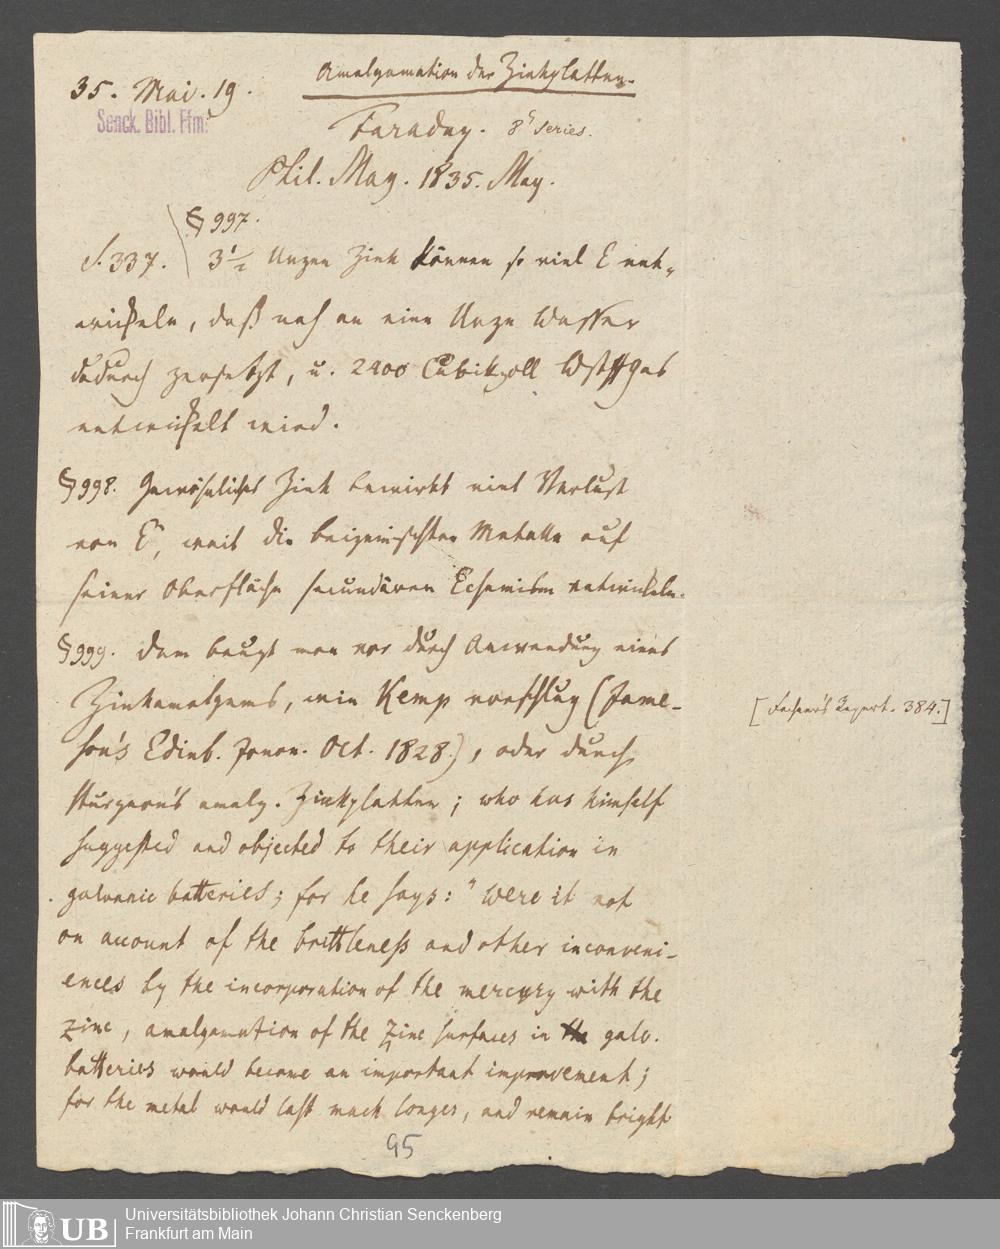 35. Mai. 19.
Amalgamation der Zinkplatten.
Senck. Bibl. Ffm.
Faraday. 8' Series.
Phil. Mag. 1835. May.
§ 997.
S. 337. 3 1/2 Unzen Zink können so viel E ent-
wickeln, daß nah an eine Unze Wasser
dadurch zersetzt, u. 2400 Cubikzoll Wstffgas
entwickelt wird.
§ 998. Gewöhnliches Zink bewirkt viel Verlust
von E, weil die beigemischten Metalle auf
seiner Oberfläche secundären Echemism entwickeln.
§ 999. Dem beugt man vor durch Anwendung eines
Zinkamalgams, wie Kemp vorschlug (Jame-
son's Edinb. Journ. Oct. 1828.), oder durch
[Fechner's Repert. 384.]
Sturgeon's amalg. Zinkplatten; who has himself
suggested and objected to their application in
galvanic batteries; for he says: "Were it not
on account of the brittleness and other inconveni-
ences by the incorporation of the mercury with the
zinc, amalgamation of the zinc surfaces in galv.
batteries would become an important improvement;
for the metal would last much longer, and remain bright
95
UB
Universitätsbibliothek Johann Christian Senckenberg
Frankfurt am Main